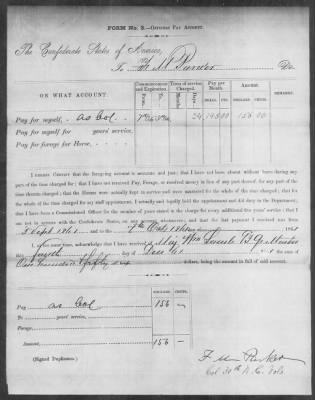 FORM No. 3.—Officers' Pay Account.
The Confederate States of America,
To F M Parker Dr.
ON WHAT ACCOUNT.
Commencement and Expiration.
From. To.
Term of service charged.
Months. Days.
Pay per Month.
DOLLS. CTS.
Amount.
DOLLARS. CENTS.
REMARKS.
Pay for myself, as Col. 24 195 00 156 00
Pay for myself for years' service,
Pay for forage for Horse,
I HEREBY CERTIFY that the foregoing account is accurate and just; that I have not been absent without leave during any
part of the time charged for; that I have not received Pay, Forage, or received money in lieu of any part thereof, for any part
of the time therein charged; that the Horses were actually kept in service and were mustered for the whole of the time charged; that for
the whole of the time charged for my staff appointment, I actually and legally held the appointment and did duty in the Department; that
I have been a Commissioned Officer for the number of years stated in the charge for every additional five years' service; that I
am not in arrears with the Confederate States, on any account, whatsoever, and that the last payment I received was from
to the 186
I, at the same time, acknowledge that I have received of Maj Wm
this day of 186
One hundred & fifty six dollars, being the amount in full of said account.
DOLLARS. CENTS.
Pay as Col 156 —
To years' service,
Forage,
Amount, 156 —
(Signed Duplicates.)
F M Parker
Col 30th N. C. Vols